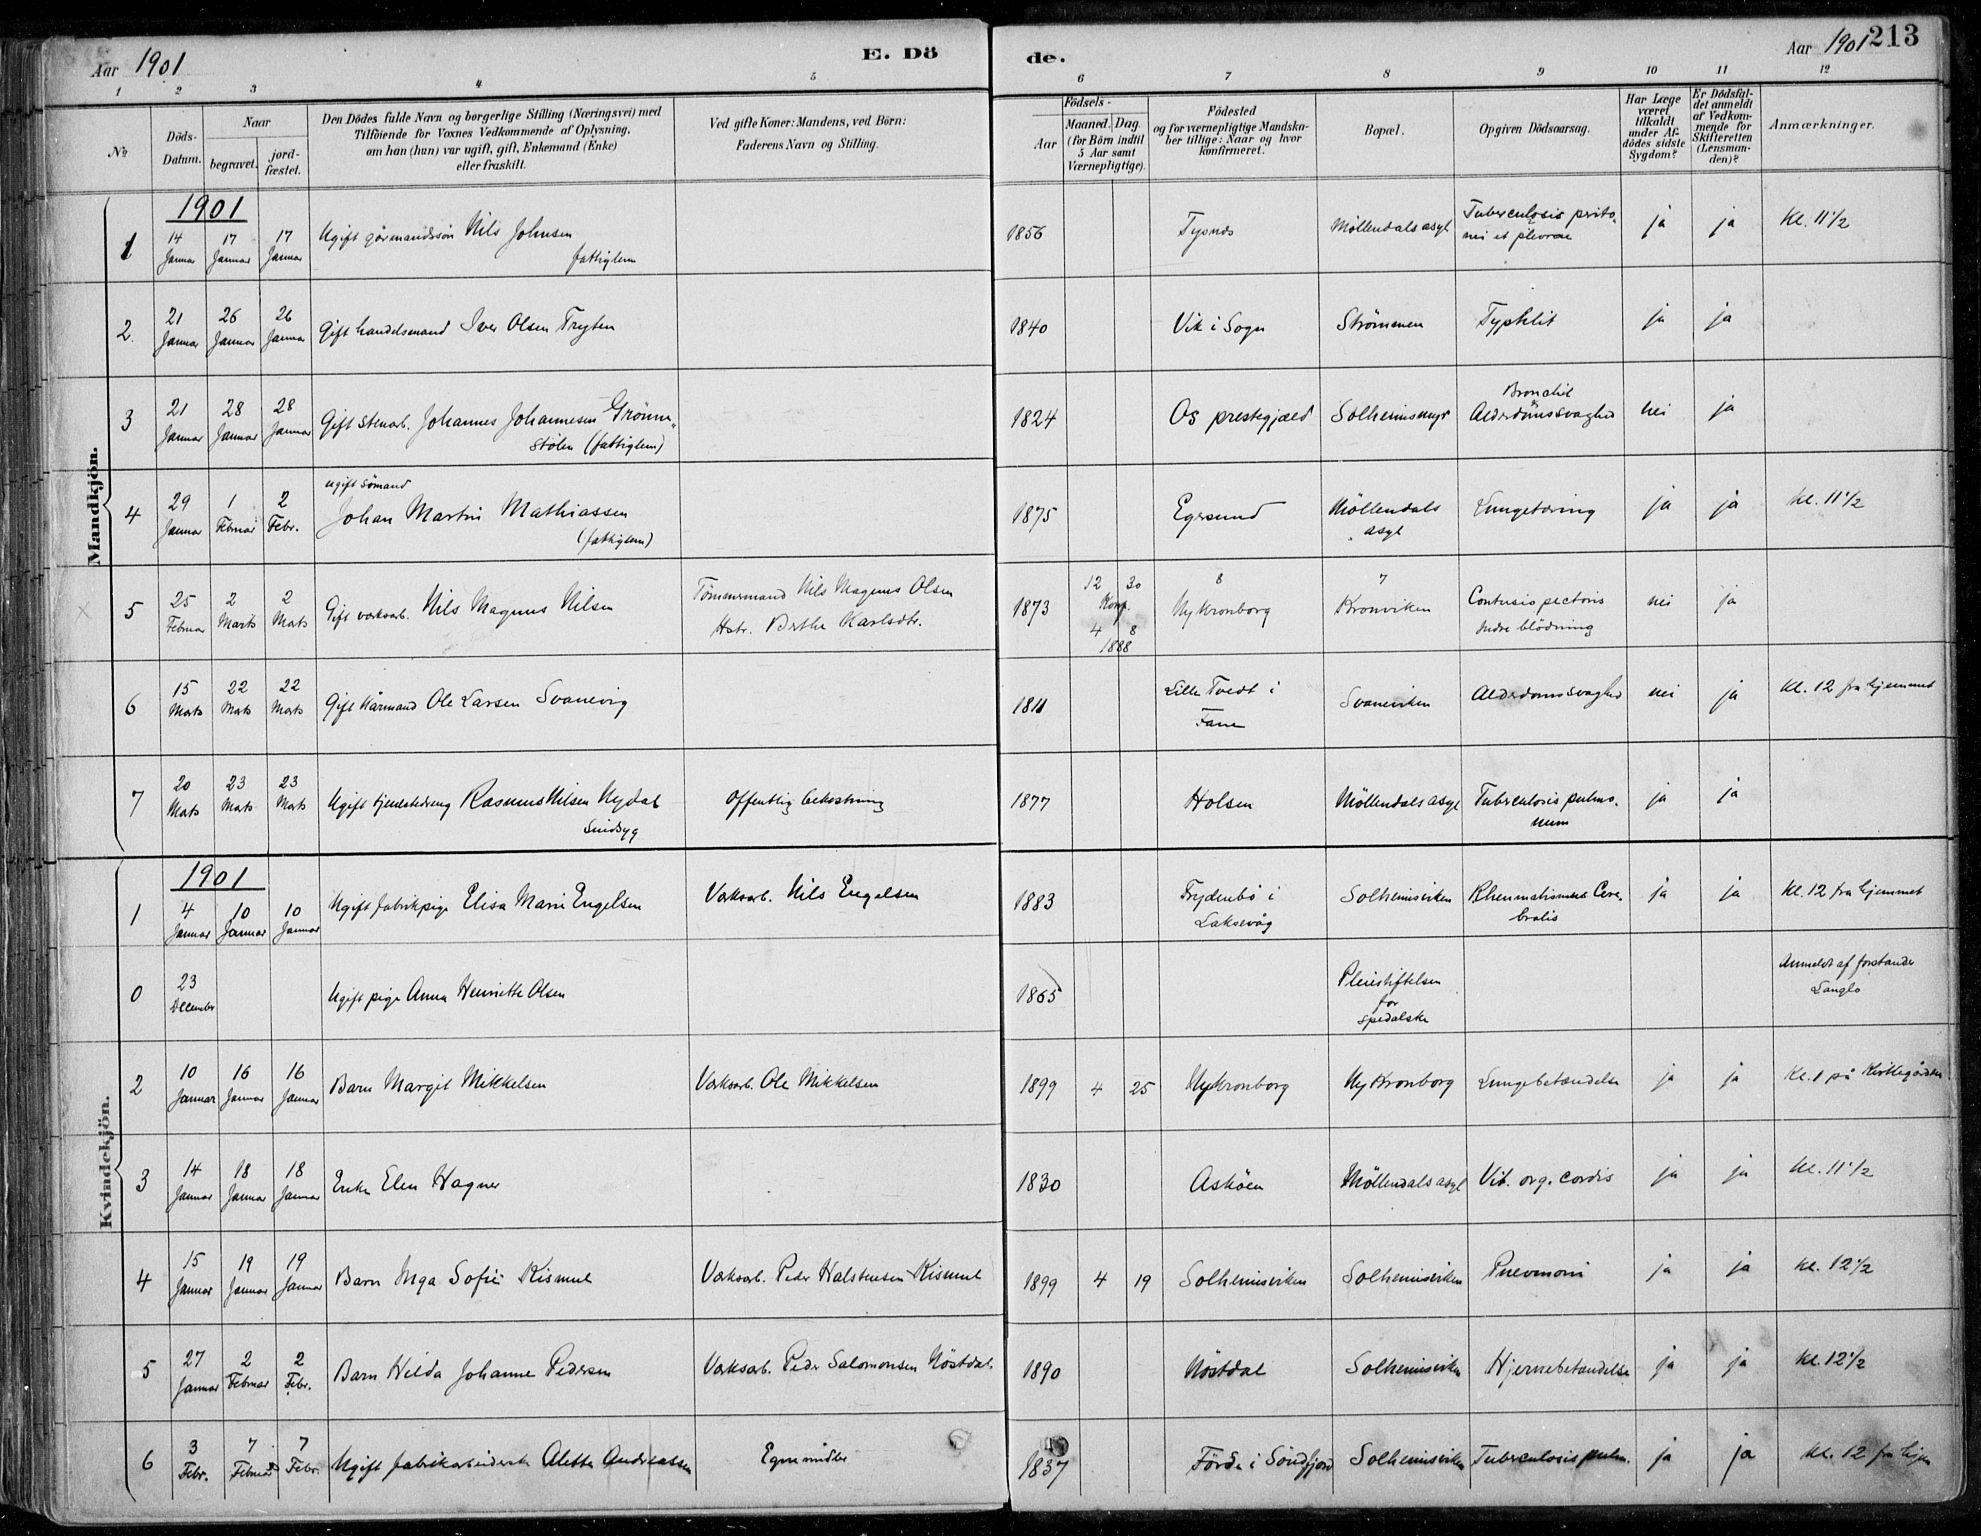 Aar 1901 E. Dö
de. Aar 1901 213
1 2 3 4 5 6 7 8 9 10 11 12
No.
Döds-Datum.
Naar
begravet.
jord-fæstet.
Den Dödes fulde Navn og borgerlige Stilling (Næringsvei) med
Tilföiende for Voxnes Vedkommende af Oplysning,
om han (hun) var ugift, gift, Enkemand (Enke)
eller fraskilt.
Ved gifte Koner: Mandens, ved Börn:
Faderens Navn og Stilling.
Födsels-
Aar
Maaned. Dag.
(for Börn indtil
5 Aar samt
Værnepligtige).
Födested
og for værnepligtige Mandska-
ber tillige: Naar og hvor
konfirmeret.
Bopæl.
Opgiven Dödsaarsag.
Har Læge
været
tilkaldt
under Af-
dödes sidste
Sygdom?
Er Dödsfal-
det anmeldt
af Vedkom-
mende for
Skifteretten
(Lensman-
den)?
Anmærkninger.
Mandkjön.
1901
1 14 Januar 17 Januar 17 Januar Ugift gårmandssön Nils Johnsen
fattiglem
1856 Tysnes Möllendals asyl Tuberculosis prito-
nei et pleurae ja ja Kl. 11 1/2
2 21 Januar 26 Januar 26 Januar Gift handelsmand Iver Olsen Tryten 1840 Vik i Sogn Strömmen Typhlit ja ja
3 21 Januar 28 Januar 28 Januar Gift stenarb. Johannes Johannesen Grönne-
stölen (fattiglem)
1824 Os prestegjæld Solheimsmyr Bronchit
Alderdomssvaghed nei ja
4 29 Januar 1 Februar 2 Febr. ugift sömand
Johan Martin Mathiassen
(fattiglem)
1875 Egersund Möllendals
asyl Lungetæring ja ja Kl. 11 1/2
5 25 Februar 2 Marts 2 Marts Gift værksarb. Nils Magnus Nilsen Tömmermand Nils Magnus Olsen
Hstr. Berthe Karlsdtr.
1873 12 30
Konf.
4 8
1888
8
Ny Kronborg
7
Kronviken Contusio pectoris
Indre blödning nei ja
6 15 Marts 22 Marts 22 Marts Gift kårmand Ole Larsen Svanevig 1811 Lille Tvedt i
Fane Svaneviken Alderdomssvaghed nei ja Kl. 12 fra hjemmet
7 20 Marts 23 Marts 23 Marts Ugift tjenestedreng Rasmus Nilsen Nydal
Sindsyg
Offentlig bekostning 1877 Holsen Möllendals asyl Tuberculosis pulmo-
num ja ja
Kvindekjön.
1901
1 4 Januar 10 Januar 10 Januar Ugift fabrikpige Elisa Marie Engelsen Værksarb. Nils Engelsen 1883 Frydenbö i
Laksevåg Solheimsviken Rheumatismus Cere-
bralis ja ja Kl. 12 fra hjemmet
0 23 December Ugift pige Anna Henriette Olsen 1865 Pleiestiftelsen
for
spedalske
Anmeldt af forstander
Langlo
2 10 Januar 16 Januar 16 Januar Barn Margit Mikkelsen Værksarb. Ole Mikkelsen 1899 4 25 Ny Kronborg Ny Kronborg Lungebetændelse ja ja Kl. 1 på Kirkegården
3 14 Januar 18 Januar 18 Januar Enke Elen Hagner 1830 Asköen Möllendals asyl Vit. org. cordis ja ja Kl. 11 1/2
4 15 Januar 19 Januar 19 Januar Barn Inga Sofie Kismul Værksarb. Peder Halstensen Kismul 1899 4 19 Solheimsviken Solheimsviken Pnevmoni ja ja Kl. 12 1/2
5 27 Januar 2 Februar 2 Febr. Barn Hilda Johanne Pedersen Værksarb. Peder Salomonsen Nöstdal 1890 Nöstdal Solheimsviken Hjernebetændelse ja ja Kl. 12 1/2
6 3 Febr. 7 Februar 7 Febr. Ugift fabrikarbeiderske Alette Andreassen Egne midler 1837 Förde i Söndfjord Solheimsviken Tuberculosis pulm. ja ja Kl. 12 fra hjem